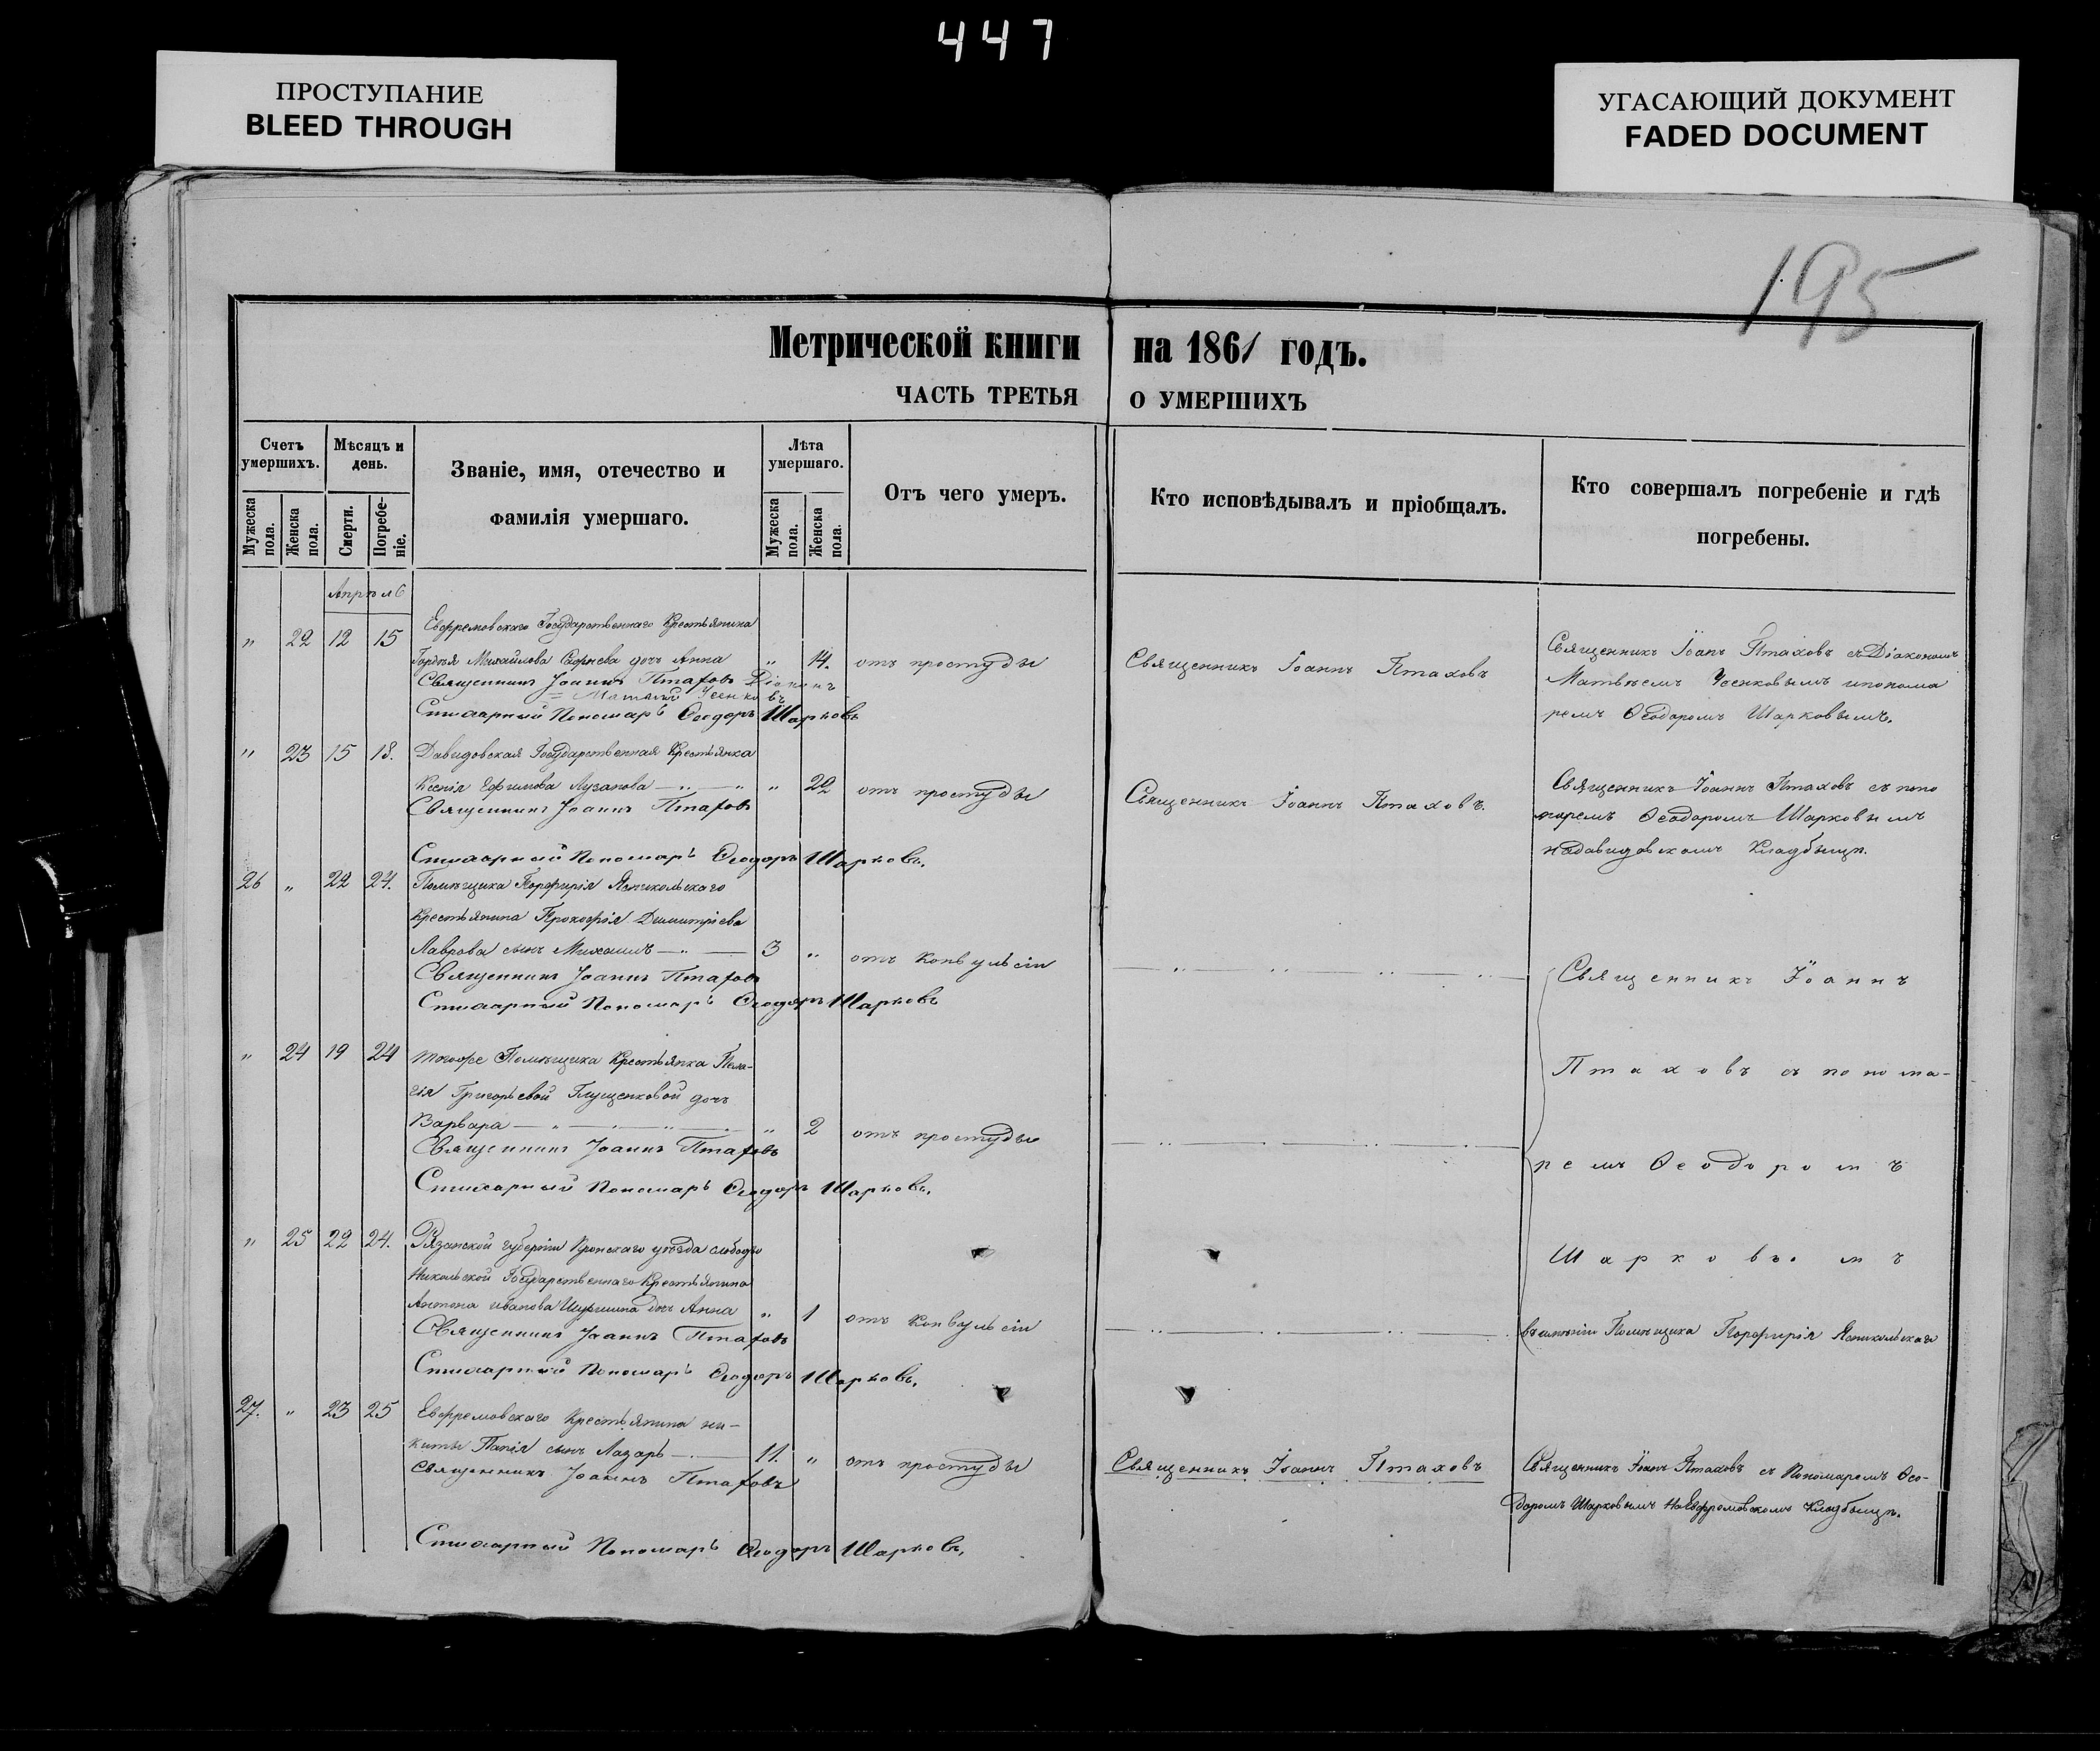 447
ПРОСТУПАНИЕ
BLEED THROUGH
УГАСАЮЩИЙ ДОКУМЕНТ
FADED DOCUMENT
195
Метрической книги на 1861 годъ.
ЧАСТЬ ТРЕТЬЯ О УМЕРШИХЪ
Счетъ умершихъ.
Мужеска пола.
Женска пола.
Мѣсяцъ и день.
Смерти.
Погребеніе.
Званіе, имя, отечество и
фамилія умершаго.
Лѣта умершаго.
Мужеска пола.
Женска пола.
Отъ чего умеръ.
Кто исповѣдывалъ и пріобщалъ.
Кто совершалъ погребеніе и гдѣ
погребены.
Апрѣль
" 22 12 15 Евфремовскаго Государственнаго Крестьянина
Гордѣя Михайлова дочь Анна " 14. отъ простуды Священникъ Іоаннъ Птаховъ
Священникъ Іоанъ Птаховъ съ Діакономъ
Матвѣемъ Усенковымъ ипонома
ремъ Ѳеодоромъ Шарковымъ.
Священникъ Іоаннъ Птаховъ Діаконъ
Матвѣй Усенковъ
Стихарный Пономарь Ѳеодоръ Шарковъ
" 23 15 18. Давидовская Государственная Крестьянка
Ксенія Ефимова Лузанова " " 22 отъ простуды Священникъ Іоаннъ Птаховъ.
Священникъ Іоаннъ Птаховъ съ поно
маремъ Ѳеодоромъ Шарковымъ
надавидовскомъ Кладбищѣ.
Священникъ Іоаннъ Птаховъ
Стихарный Пономарь Ѳеодоръ Шарковъ.
26 " 22 24. Помѣщика Порфирія Яспикольскаго
Крестьянина Прокофія Димитріева
Лаврова сынъ Михаилъ 3 " отъ конвульсіи
Священникъ Іоаннъ Птаховъ
Стихарный Пономарь Ѳеодоръ Шарковъ
" 24 19 24 тогоже Помѣщика Крестьянка Пела-
гія Григорьевой Глущенковой дочь
Варвара " 2 отъ простуды
Священникъ Іоаннъ Птаховъ
Стихарный Пономарь Ѳеодоръ Шарковъ.
" 25 22 24. Рязанской губерніи Пронскаго уѣзда слободы
Никольской Государственнаго Крестьянина
Антона Иванова дочь Анна " 1 отъ конвульсіи
Священникъ Іоаннъ Птаховъ
Стихарный Пономарь Ѳеодоръ Шарковъ.
Священникъ Іоаннъ
Птаховъ съ понома-
ремъ Ѳеодоромъ
Шарковымъ
вимѣніи Помѣщика Порфирія Яспикольскаго
27. " 23 25 Евфремовскаго Крестьянина ни-
киты Папія сынъ Лазарь 11. " отъ простуды Священникъ Іоаннъ Птаховъ
Священникъ Іоанъ Птаховъ съ Пономаремъ Ѳео-
доромъ Шарковымъ наЕвфремовскомъ Кладбищѣ.
Священникъ Іоаннъ Птаховъ
Стихарный Пономарь Ѳеодоръ Шарковъ.